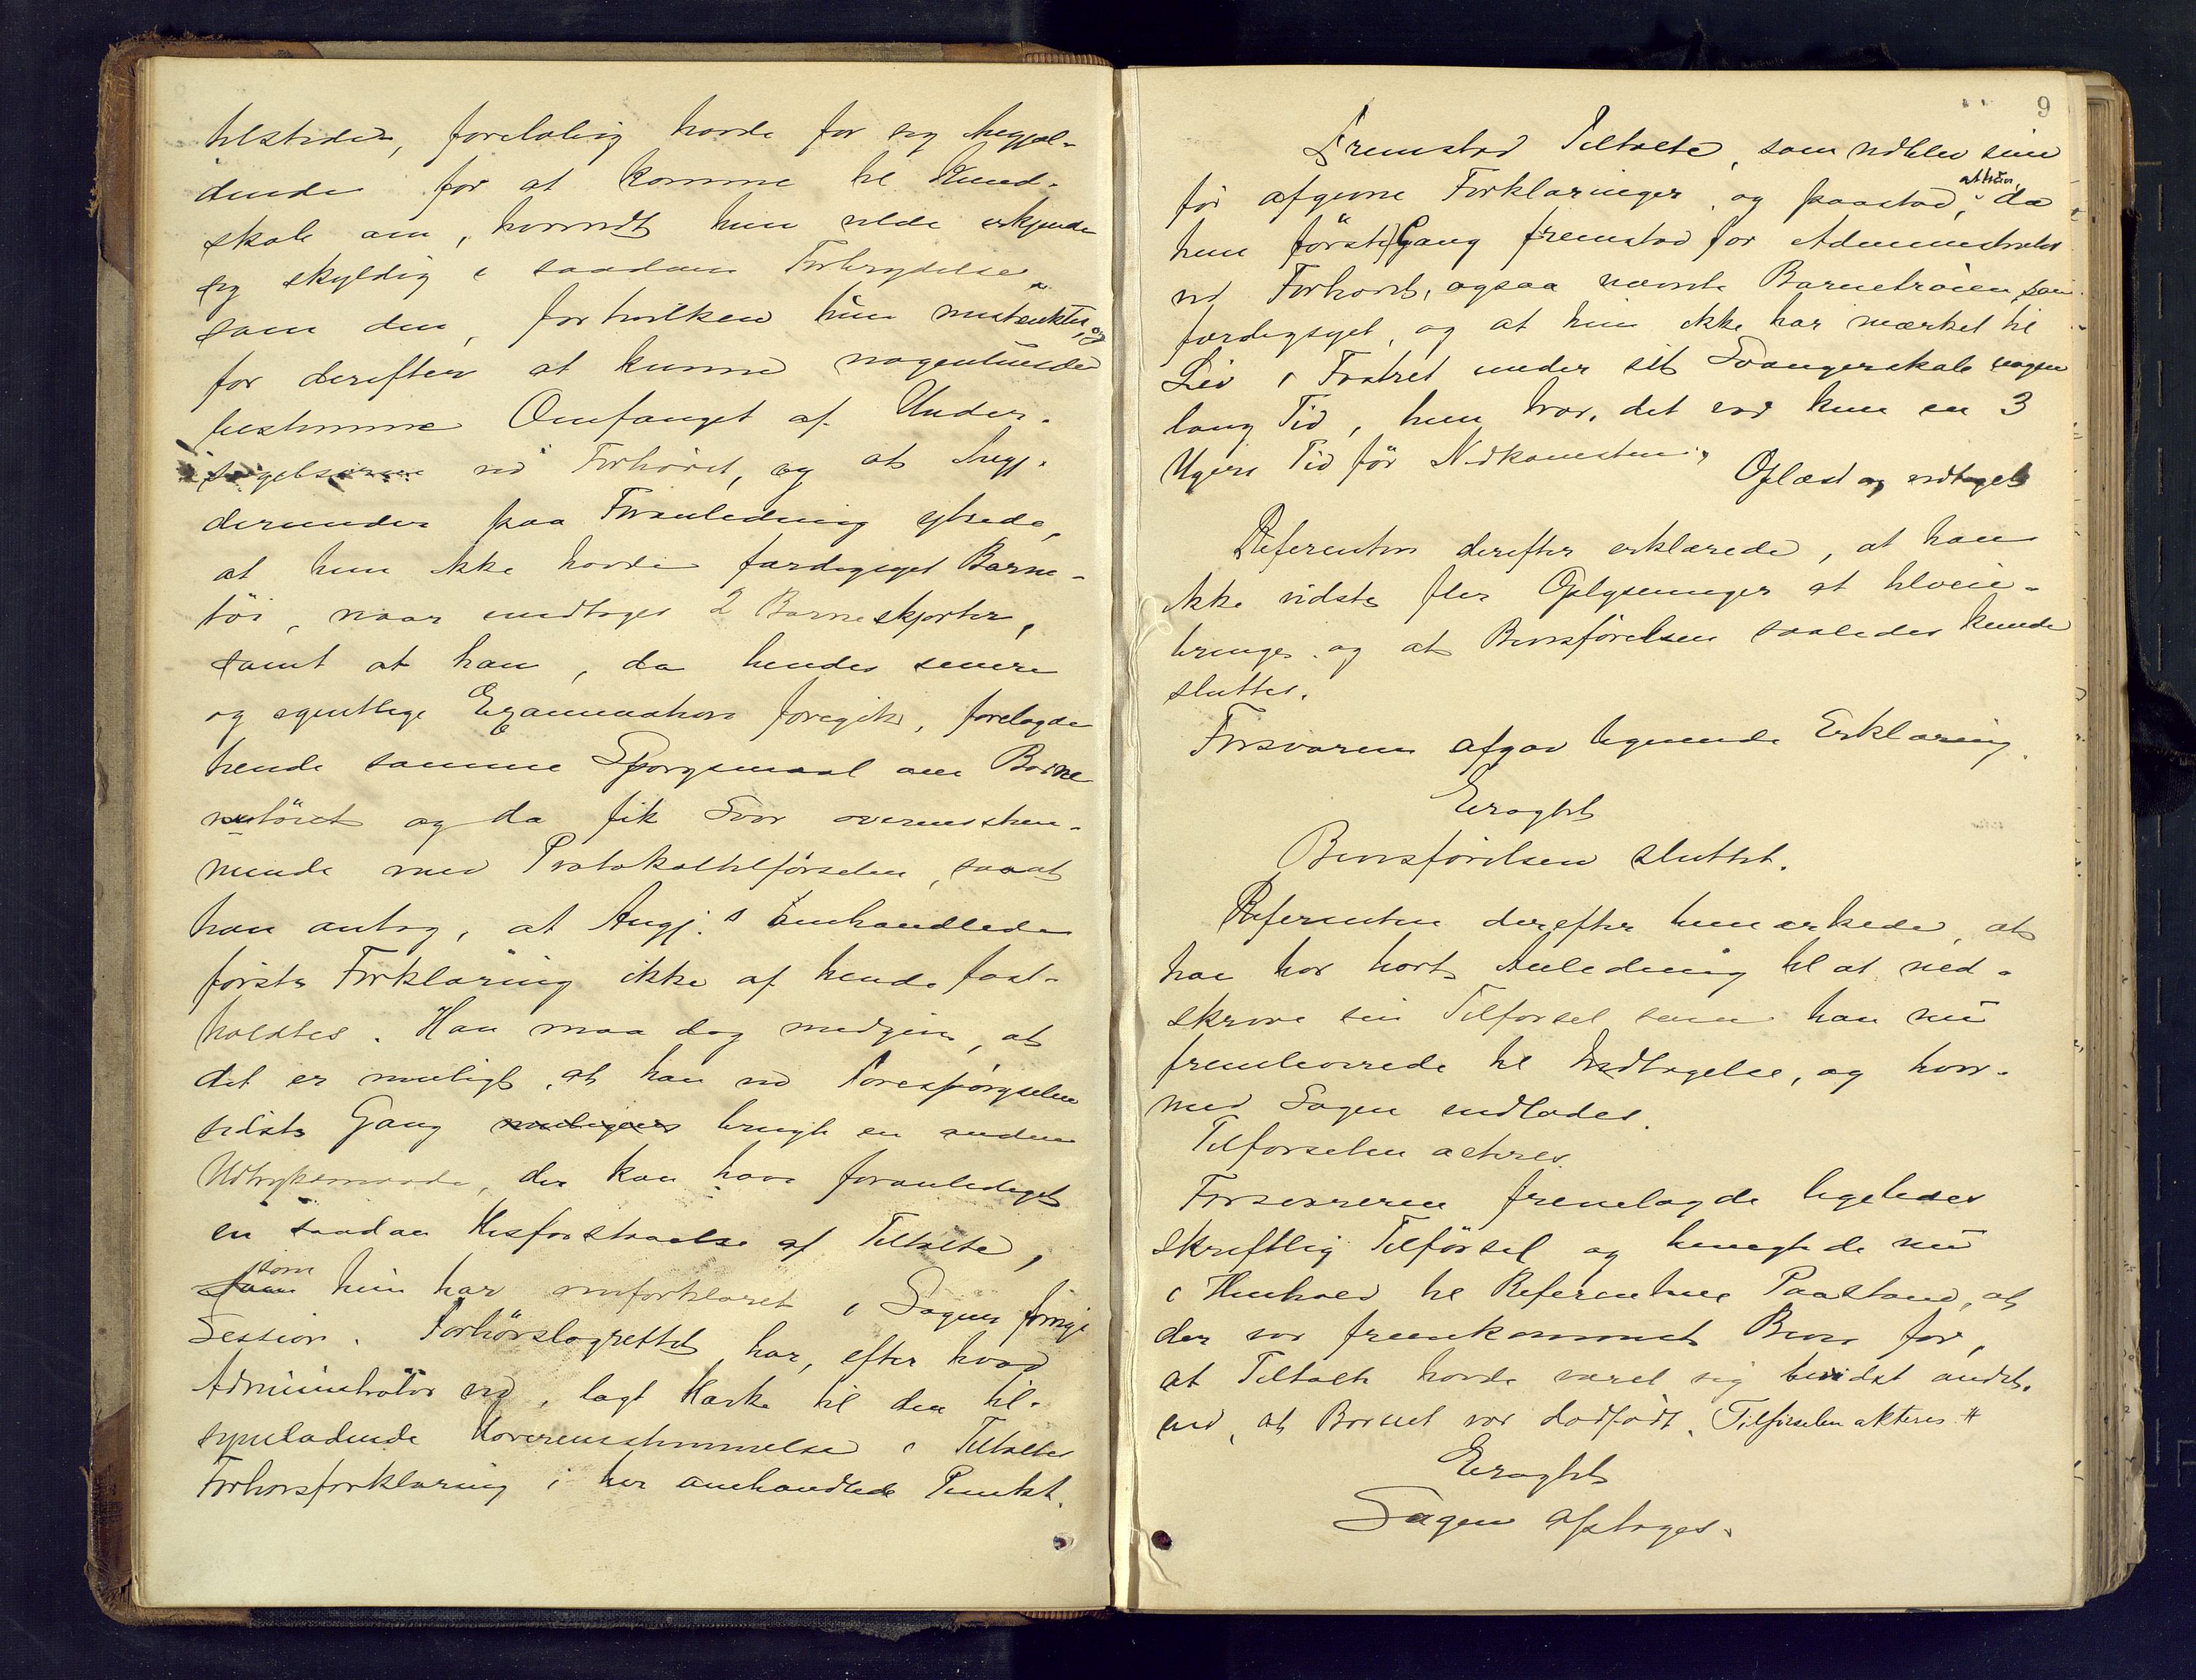 tilstede, foreløbig havde for sig Angjæl-
dende for at komme til Kund-
skab om, hvorvidt hun vilde erkjende
sig skyldig i saadan Forbrydelse
som den, for hvilken hun mistænktes, og
for derefter at kunne nogenlunde
bestemme Omfanget af Under-
søgelserne ved Forhøret, og at Angj.
derunder paa Foranledning ytrede,
at hun ikke havde færdigsyet Barne-
tøi, naar undtages 2 Barneskjorter,
samt at han, da hendes senere
og egentlige Examination foregik, forelagde
hende samme Spørgsmaal om Barne
tøiet og da fik Svar overensstem-
mende med Protokoltilførselen, saa at
han antog, at Angj.s omhandlede
første Forklaring ikke af hende fast-
holdtes. Han maa dog medgive, at
det er muligt, at han ved Forespørgselen
sidste Gang muligens brugte en anden
Udtryksmaade, der kan have foranlediget
en saadan Misforstaaelse af Tiltalte,
som hun har omforklaret i Sagens forrige
Session. Forhørslagrettet har, efter hvad
Administrator ved, lagt Mærke til den til-
syneladende Uoverensstemmelse i Tiltaltes
Forhørsforklaring i her omhandlede Punkt.
9
Fremstod Tiltalte, som vedblev sine
før afgivne Forklaringer, og paastod, at hun, da
hun første Gang fremstod for Administrator
ved Forhøret, ogsaa nævnte Barnetrøien som
færdigsyet, og at hun ikke har mærket til
Liv i Fostret under sit Svangerskab nogen
lang Tid, hun tror, det var kun en 3
Ugers Tid før Nedkomsten.
Oplæst og vedtaget
Referenten derefter erklærede, at han
ikke vidste fler Oplysninger at tilveie-
bringe og at Bevisførelsen saaledes kunde
sluttes.
Forsvareren afgav lignende Erklæring.
Eragtet
Bevisførelsen sluttet.
Referenten derefter bemærkede, at
han har havt Anledning til at ned-
skrive sin Tilførsel som han nu
fremleverede til Indtagelse, og hvor-
med Sagen indlades.
Tilførselen acteres.
Forsvareren fremlagde ligeledes
skriftlig Tilførsel og benegtede nu
i Henhold til Referentens Paastand, at
der var fremkommet Bevis for,
at Tiltalte havde været sig bevidst andet,
end, at Barnet var dødfødt. Tilførselen akteres #
Eragtet
Sagen optages.